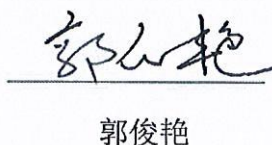 郭俊艳
郭俊艳